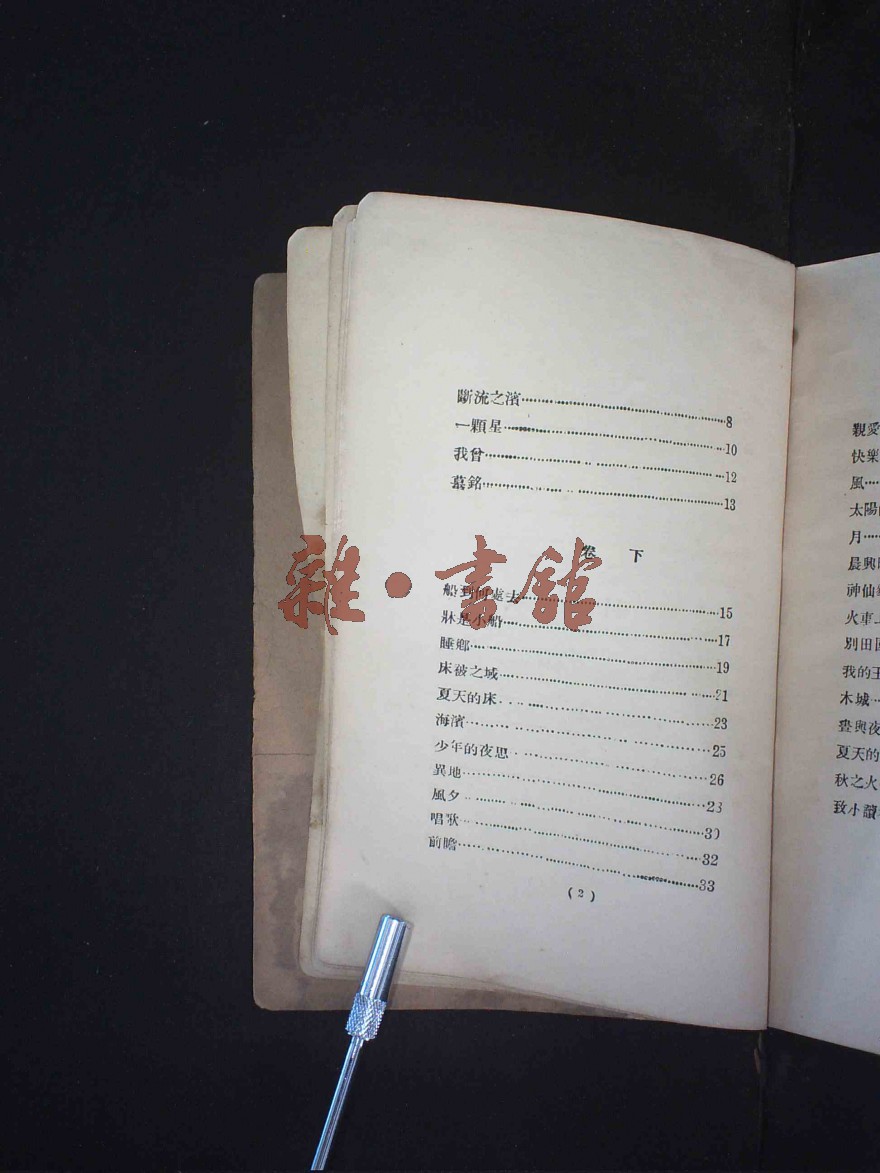 斷流之濱……8
一顆星……10
我曾……12
墓銘……13
卷 下
船到何處去……15
牀是小船……17
睡鄉……19
床被之域……21
夏天的床……23
海濱……25
少年的夜思……26
異地……28
風夕……30
唱歌……32
前瞻……33
(2)
親愛
快樂
風……
太陽
月……
晨興
神仙
火車
別田
我的王
木城
夏天的
秋之火
致小讀
雜·書舘